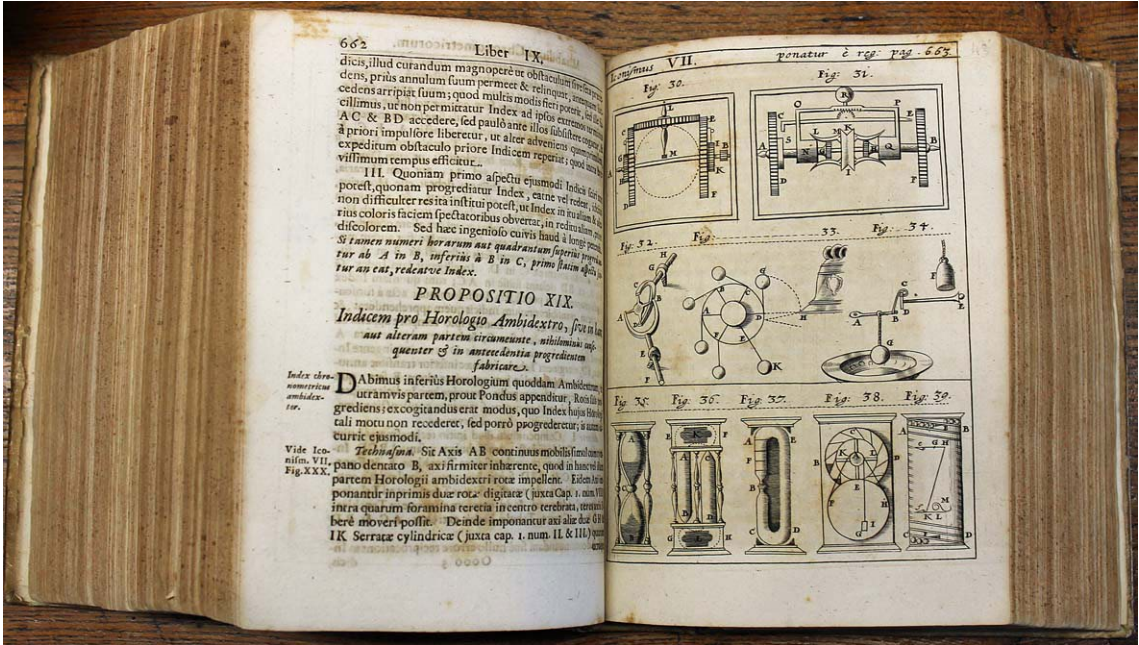 662 Liber IX.
dicis, illud curandum magnoperè ut obstaculum
dens, priùs annulum suum permeet & relinquat,
cedens arripiat suum; quod multis modis fieri poterit,
cillimus, ut non permittatur Index ad ipsos extremos
AC & BD accedere, sed paulò ante illos subsistere
à priori impulsore liberetur, ut alter adveniens
expeditum obstaculo priore Indicem reperiat; quod
vissimum tempus efficitur.
III. Quoniam primo aspectu ejusmodi Indicis
potest, quonam progrediatur Index, eatne vel redeat,
non difficulter res ita institui potest, ut Index in itu alium &
rius coloris faciem spectatoribus obvertat, in reditu alium,
discolorem. Sed hæc ingenioso cuivis haud à longè
Si tamen numeri horarum aut quadrantum superiùs
tur ab A in B, inferiùs à B in C, primo statim aspectu
tur an eat, redeatve Index.
PROPOSITIO XIX.
Indicem pro Horologio Ambidextro, sive in
aut alteram partem circumeunte, nihilominus
quenter & in antecedentia progredientem
fabricare.
Index chro-
nometricus
ambidex-
ter.
DAbimus inferiùs Horologium quoddam Ambidextrum,
utramvis partem, prout Pondus appenditur, Rotis
grediens; excogitandus erat modus, quo Index hujus
tali motu non recederet, sed porrò progrederetur; is
currit ejusmodi.
Vide Ico-
nism. VII.
Fig. XXX.
Technasma. Sit Axis AB continuus mobilis simul cum
pano dentato B, axi firmiter inhærente, quod in hanc vel
partem Horologii ambidextri rotæ impellent. Eidem Axi
ponantur inprimis duæ rotæ digitatæ (juxta Cap. 1. num. VII
intra quarum foramina teretia in centro terebrata,
berè moveri possit. Deinde imponantur axi aliæ duæ GH
IK Serratæ cylindricæ (juxta cap. 1. num. II. & III.)
Oooo 3
Iconismus VII. ponatur è reg: pag. 663
Fig: 30. Fig: 31.
L
C E
M
G I B
A K
H
D F
R
O P
C E
S L M K
A N G H Q B
I
D F
Fig: 32. Fig: 33. Fig. 34.
H
G
C
B
A
D
E
F
G
B C
A D H
F E
K
F
C
A B D E
G
Fig. 35. Fig: 36. Fig: 37. Fig: 38. Fig: 39.
A
C
B
E K F
B D
G I H
A E
F
B
D
C
A C
B K L D
E
F H
I
G
A B
E G H
M
K L
C D